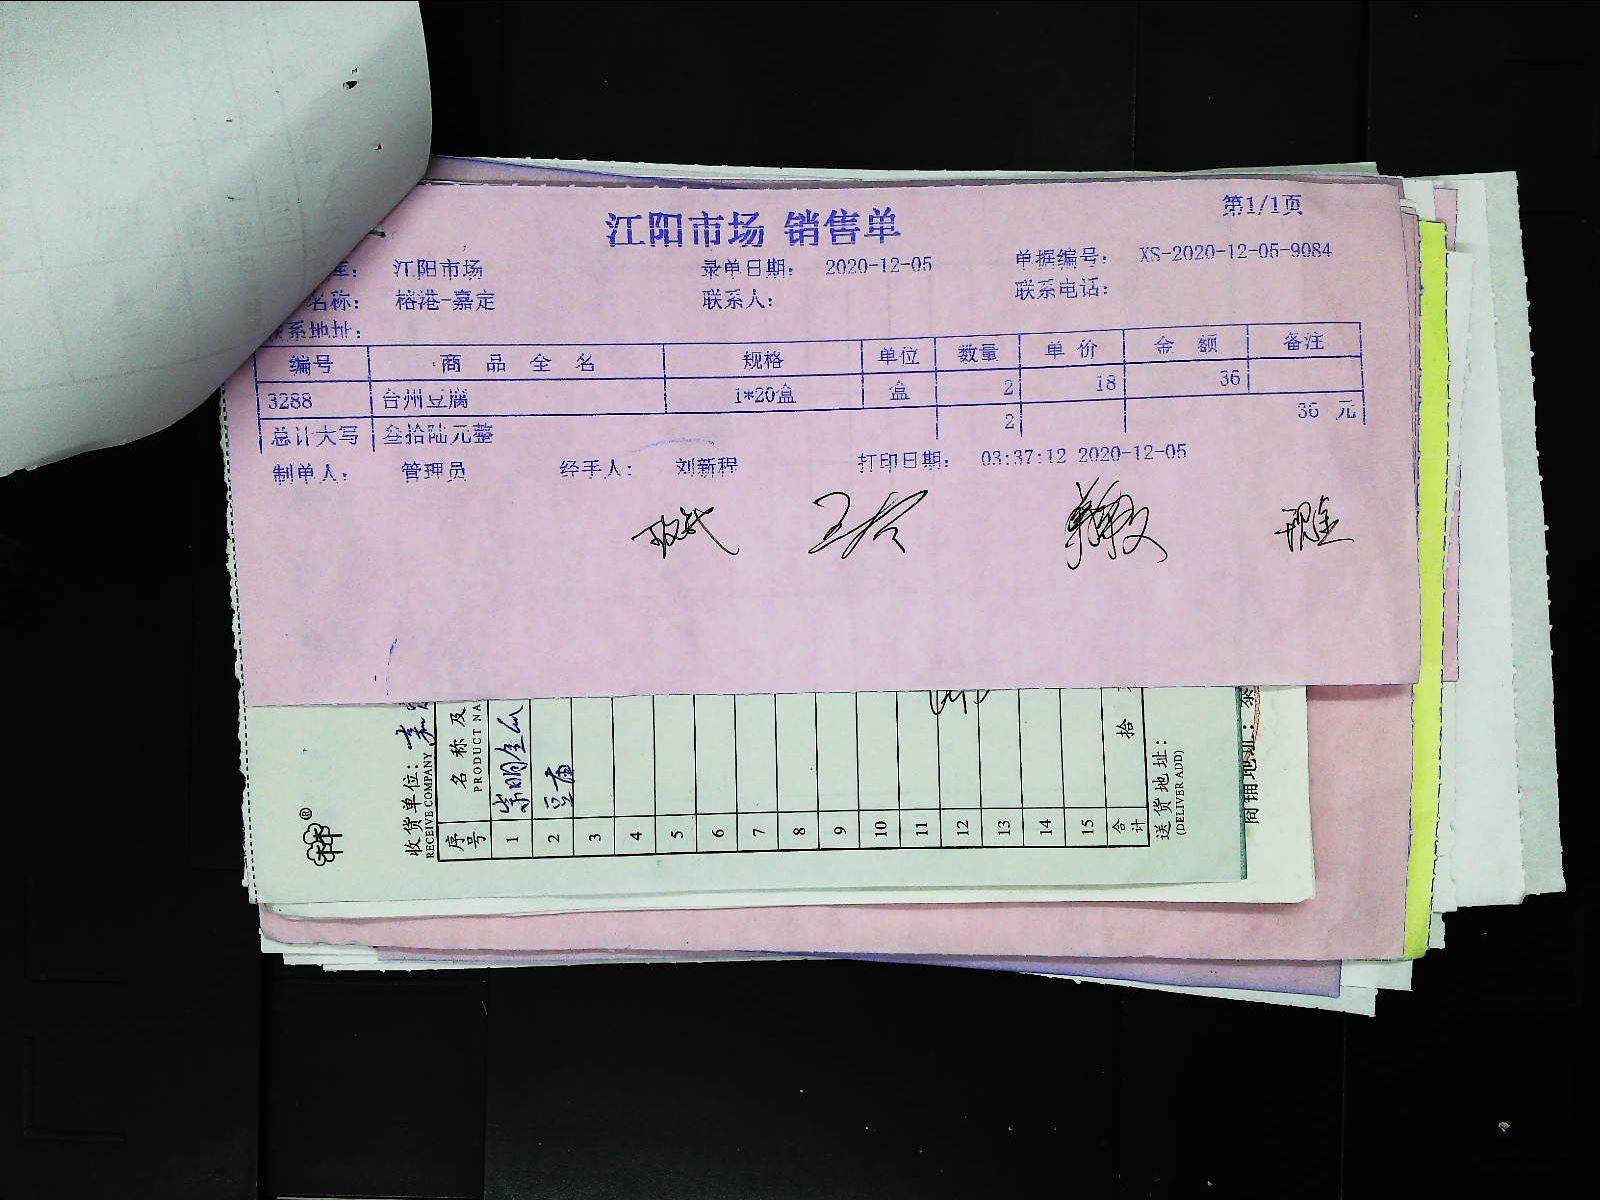 江阳市场 销售单
第1/1页
库： 江阳市场 录单日期： 2020-12-05 单据编号： XS-2020-12-05-9084
名称： 榕港-嘉定 联系人： 联系电话：
联系地址：
编号 商品全名 规格 单位 数量 单价 金额 备注
3288 台州豆腐 1*20盒 盒 2 18 36
总计大写 叁拾陆元整 2 36 元
制单人： 管理员 经手人： 刘新程 打印日期： 03:37:12 2020-12-05
收货单位：
RECEIVE COMPANY
序号 名称及
PRODUCT NA
1 崇明
2 豆腐
3
4
5
6
7
8
9
10
11
12
13
14
15
合计 拾
送货地址：
(DELIVER ADD)
商铺地址：